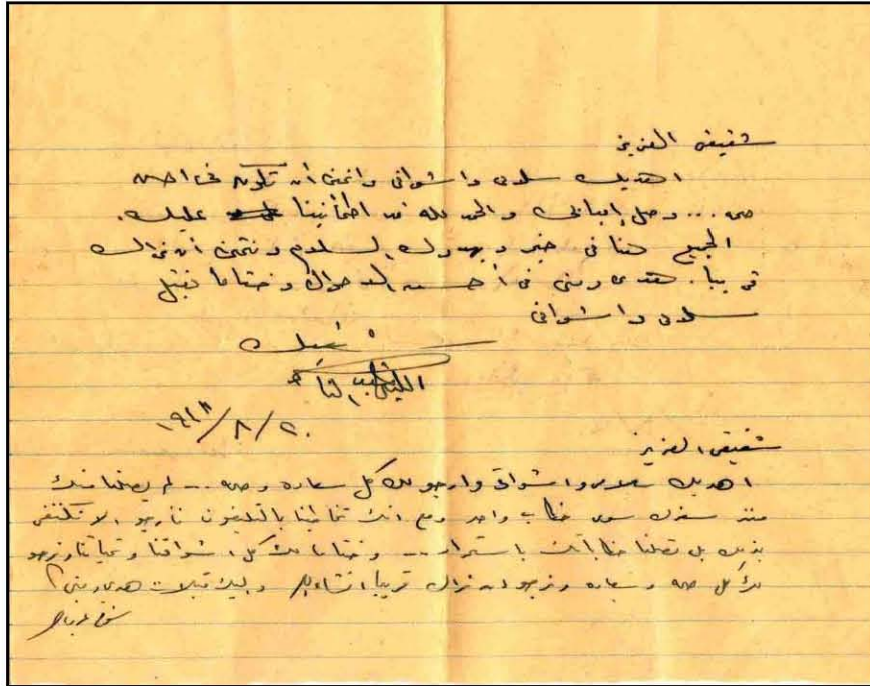 شقيقى العزيز
اهديك سلامى واشواقى واتمنى أن تكون فى احسن
صحه ... وصل والحمد لله قد اطمأنينا عليك.
الجميع هنا فى خير ويهدوك السلام ونتمنى أن نراك
قريبا. هدى ومنى فى أحسن الاحوال وختاما تقبل
سلامى واشواقى
الليثى عبد الناصر
٢٠/٨/
شقيقى العزيز
اهديك سلامى واشواقى وارجو لك كل سعاده وصحه ... لم يصلنا منك
منذ سفرك سوى خطاب واحد ومع انك تخاطبنا بالتليفون نارجو الا تكتفى
بذلك بل تصلنا خطاباتك باستمرار ... وختاما لك كل اشواقنا وتحياتنا ونرجو
لك كل صحه وسعاده ونرجو ان نراك قريبا انشاء الله قبلات هدى ومنى